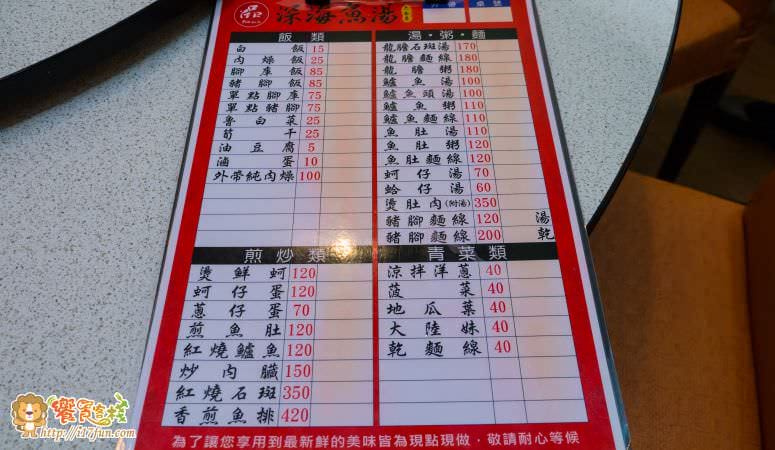 深海魚湯
外帶 桌號
飯類
白飯 15
肉燥飯 25
腳庫飯 85
豬腳飯 85
單點腳庫 75
單點豬腳 75
魯白菜 25
筍干 25
油豆腐 5
滷蛋 10
外帶純肉燥 100
湯・粥・麵
龍膽石斑湯 170
龍膽麵線 180
龍膽粥 180
鱸魚湯 100
鱸魚頭湯 100
鱸魚粥 110
鱸魚麵線 110
魚肚湯 110
魚肚粥 120
魚肚麵線 120
蚵仔湯 70
蛤仔湯 60
燙肚肉(附湯) 350
豬腳麵線 120 湯
豬腳麵線 200 乾
煎炒類
燙鮮蚵 120
蚵仔蛋 120
蔥仔蛋 70
煎魚肚 120
紅燒鱸魚 120
炒肉臟 150
紅燒石斑 350
香煎魚排 420
青菜類
涼拌洋蔥 40
菠菜 40
地瓜葉 40
大陸妹 40
乾麵線 40
為了讓您享用到最新鮮的美味皆為現點現做，敬請耐心等候
饗食客棧
http://i17fun.com/